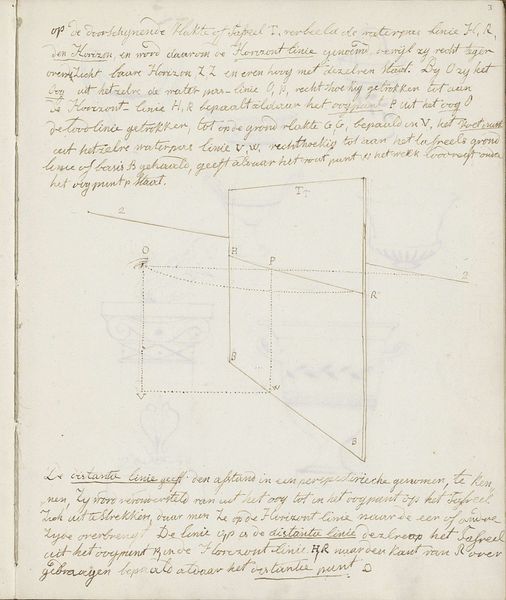 3
op de doorschynende vlakte of tafreel T. verbeeld de waterpas linie H, R,
den Horizon, en word daarom de Horizont linie genoemd, dewijl zy recht tegen
over Zicht baare Horizon Z Z en even hoog met dezelven staat. By O zy het
oog uit hetzelve de water pas-linie O, P, rechthoekig getrokken tot aan
de Horizont-linie H, R bepaalt aldaar het oogpunt P uit het oog O
de loodlinie getrokken, tot op de grond vlakte G G, bepaald in V, het Voetpunt
uit hetzelve waterpas linie V W, rechthoekig tot aan het tafreels grond
linie of basis B gehaald, geeft aldaar het voet punt het welk loodrecht onder
het oogpunt P staat.
T
2
H
O
P
2
R
B
V
W
B
De distantie linie geeft den afstand in een perspectivische genomen, te ken
nen, Zij word verondersteld van uit het oog tot in het oogpunt op het Tafreel
Zich uit te strekken, daar men Ze op de Horizont linie naar de eer of andere
Zyde overbrengt. De linie o,p is de distantie linie dezelve op het Tafreel
uit het oogpunt in de Horizont-linie H,R naar den kant van R over
gebragen bepaald aldaar het distantie punt D